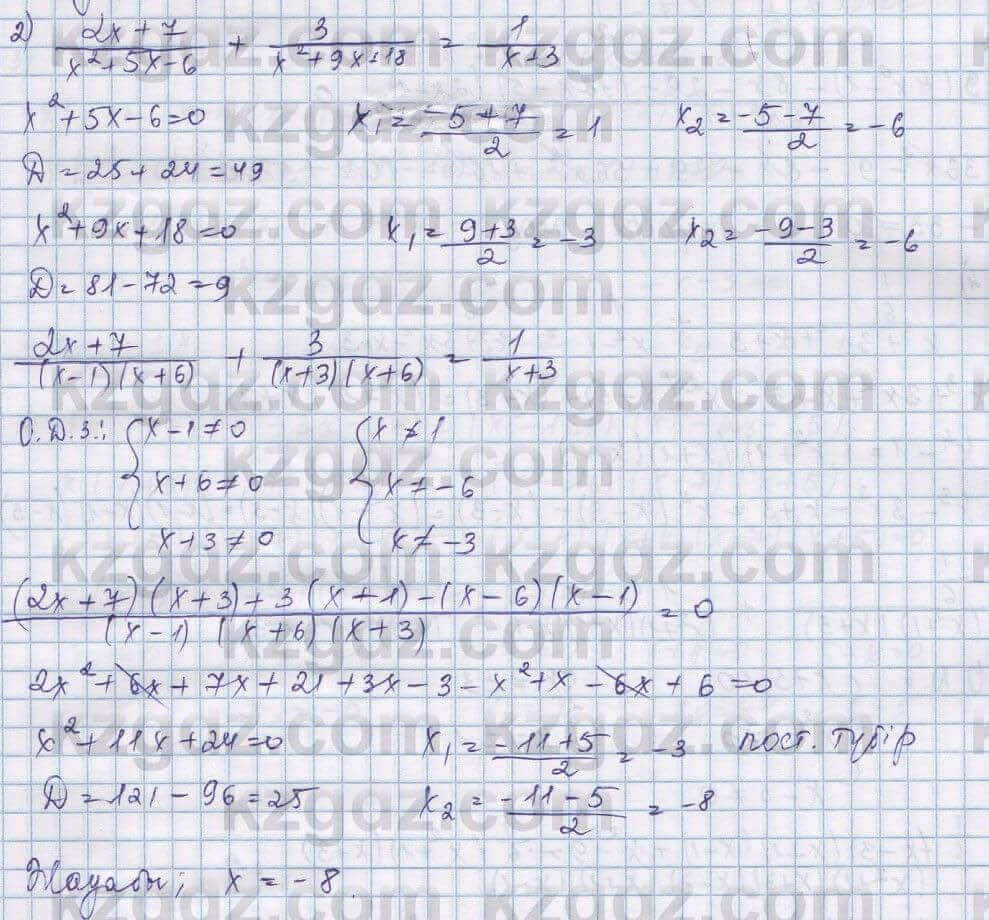 2) (2x + 7)/(x² + 5x - 6) + 3/(x² + 9x + 18) = 1/(x + 3)
x² + 5x - 6 = 0 x₁ = (-5 + 7)/2 = 1 x₂ = (-5 - 7)/2 = -6
D = 25 + 24 = 49
x² + 9x + 18 = 0 x₁ = (9 + 3)/2 = -3 x₂ = (-9 - 3)/2 = -6
D = 81 - 72 = 9
(2x + 7)/((x - 1)(x + 6)) + 3/((x + 3)(x + 6)) = 1/(x + 3)
О.Д.З.: { x - 1 ≠ 0 { x ≠ 1
x + 6 ≠ 0 x ≠ -6
x + 3 ≠ 0 x ≠ -3
((2x + 7)(x + 3) + 3(x + 1) - (x - 6)(x - 1))/((x - 1)(x + 6)(x + 3)) = 0
2x² + 6x + 7x + 21 + 3x - 3 - x² + x - 6x + 6 = 0
x² + 11x + 24 = 0 x₁ = (-11 + 5)/2 = -3 пост. түбір
D = 121 - 96 = 25 x₂ = (-11 - 5)/2 = -8
Жауабы; x = -8.
kzgdz.com